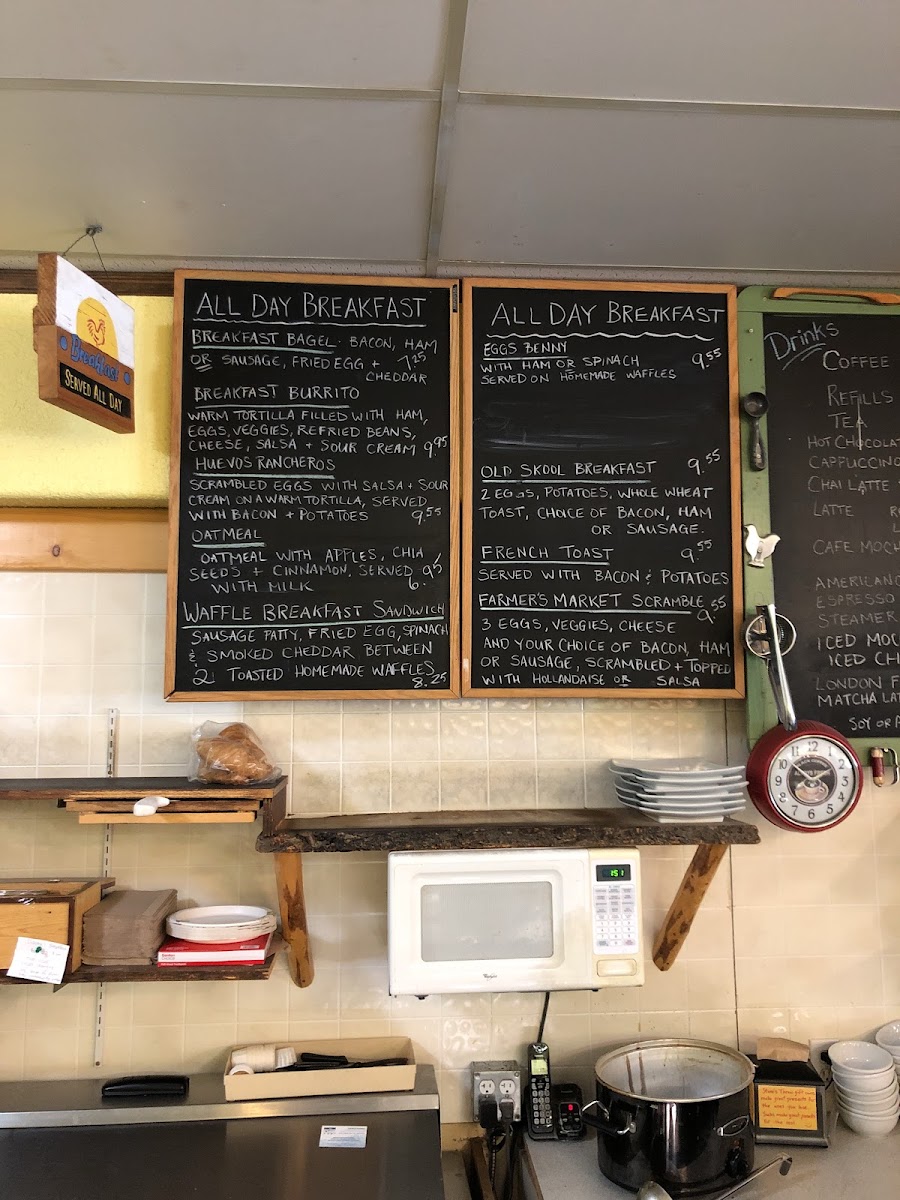 Breakfast
SERVED ALL DAY
ALL DAY BREAKFAST
BREAKFAST BAGEL - BACON, HAM
OR SAUSAGE, FRIED EGG + 7.25
CHEDDAR
BREAKFAST BURRITO
WARM TORTILLA FILLED WITH HAM,
EGGS, VEGGIES, REFRIED BEANS,
CHEESE, SALSA + SOUR CREAM 9.95
HUEVOS RANCHEROS
SCRAMBLED EGGS WITH SALSA + SOUR
CREAM ON A WARM TORTILLA, SERVED
WITH BACON + POTATOES 9.55
OATMEAL
OATMEAL WITH APPLES, CHIA
SEEDS + CINNAMON, SERVED
WITH MILK 6.95
WAFFLE BREAKFAST SANDWICH
SAUSAGE PATTY, FRIED EGG, SPINACH
& SMOKED CHEDDAR BETWEEN
2 TOASTED HOMEMADE WAFFLES
8.25
ALL DAY BREAKFAST
EGGS BENNY
WITH HAM OR SPINACH 9.55
SERVED ON HOMEMADE WAFFLES
OLD SKOOL BREAKFAST 9.55
2 EGGS, POTATOES, WHOLE WHEAT
TOAST, CHOICE OF BACON, HAM
OR SAUSAGE.
FRENCH TOAST 9.55
SERVED WITH BACON & POTATOES
FARMER'S MARKET SCRAMBLE 9.55
3 EGGS, VEGGIES, CHEESE
AND YOUR CHOICE OF BACON, HAM
OR SAUSAGE, SCRAMBLED + TOPPED
WITH HOLLANDAISE OR SALSA
Drinks
COFFEE
REFILLS
TEA
HOT CHOCOLAT
CAPPUCCINO
CHAI LATTE
LATTE
CAFE MOCH
AMERICANO
ESPRESSO
STEAMER
ICED MOC
ICED CH
LONDON F
MATCHA LAT
SOY OR
12
1
2
3
4
5
6
7
8
9
10
11
1:51
Whirlpool